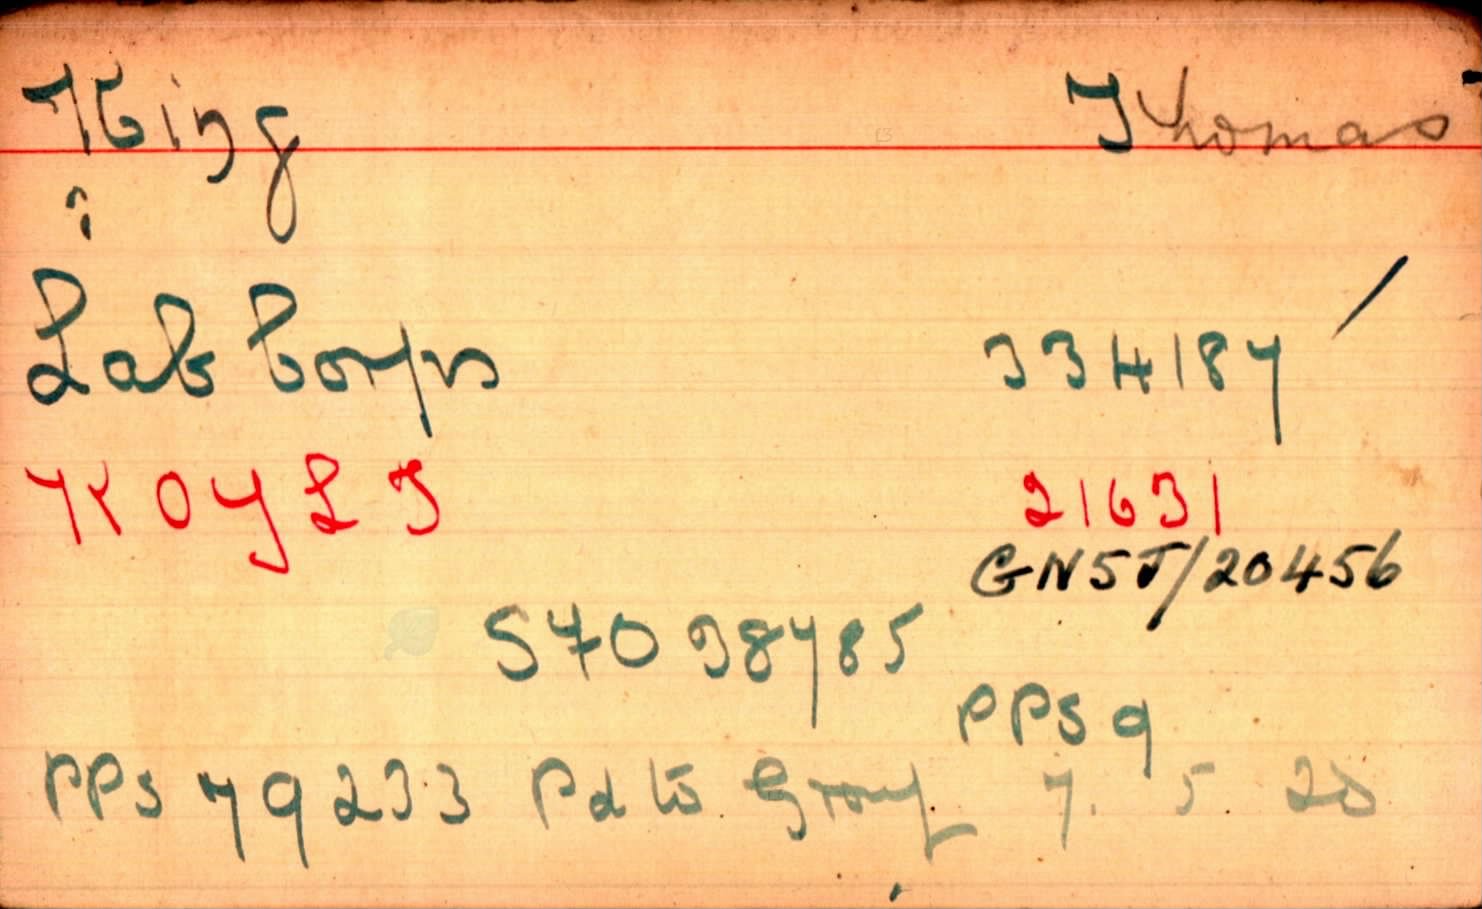 King Thomas
Lab Corps 334187 /
KOYLI 21631
GNSJ/20456
570 38785
PPS 9
PPS 79233 Pd to Group 7. 5. 20